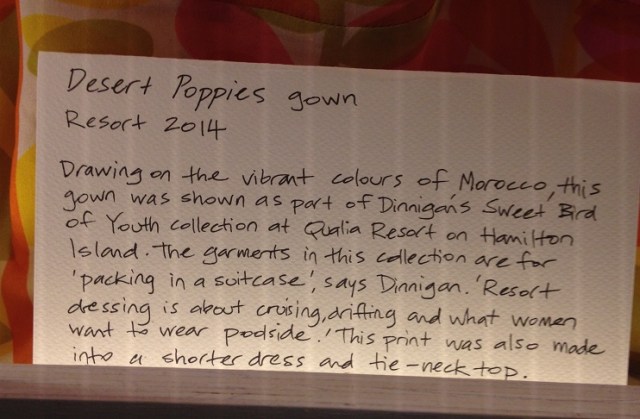 Desert Poppies gown
Resort 2014
Drawing on the vibrant colours of Morocco, this
gown was shown as part of Dinnigan's Sweet Bird
of Youth collection at Qualia Resort on Hamilton
Island. The garments in this collection are for
'packing in a suitcase', says Dinnigan. 'Resort
dressing is about cruising, drifting and what women
want to wear poolside.' This print was also made
into a shorter dress and tie-neck top.